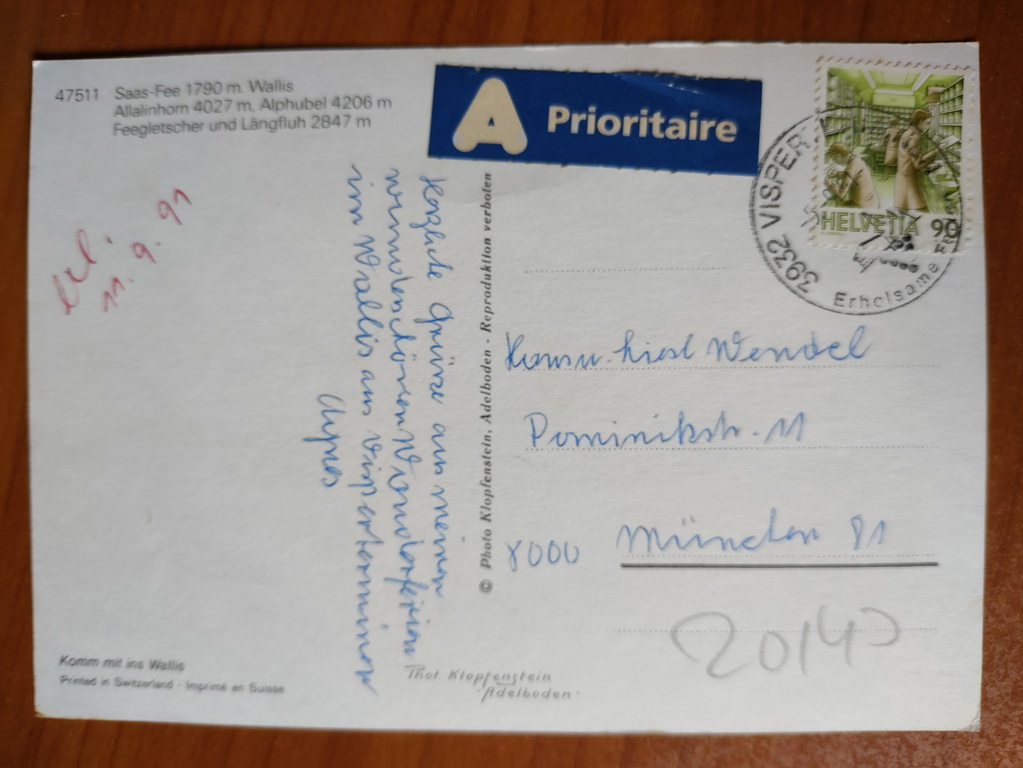 47511 Saas-Fee 1790 m. Wallis
Allalinhorn 4027 m, Alphubel 4206 m
Feegletscher und Längfluh 2847 m
A Prioritaire
HELVETIA 90
3932 VISPER
Erholsame
11. 9. 91
Herzliche Grüsse aus meinen
wunderschönen Wanderferien
im Wallis aus Visperterminen
Agnes
© Photo Klopfenstein, Adelboden - Reproduktion verboten
Wendel
Dominikstr. 11
8000 München 81
Phot. Klopfenstein
Adelboden
Komm mit ins Wallis
Printed in Switzerland - Imprimé en Suisse